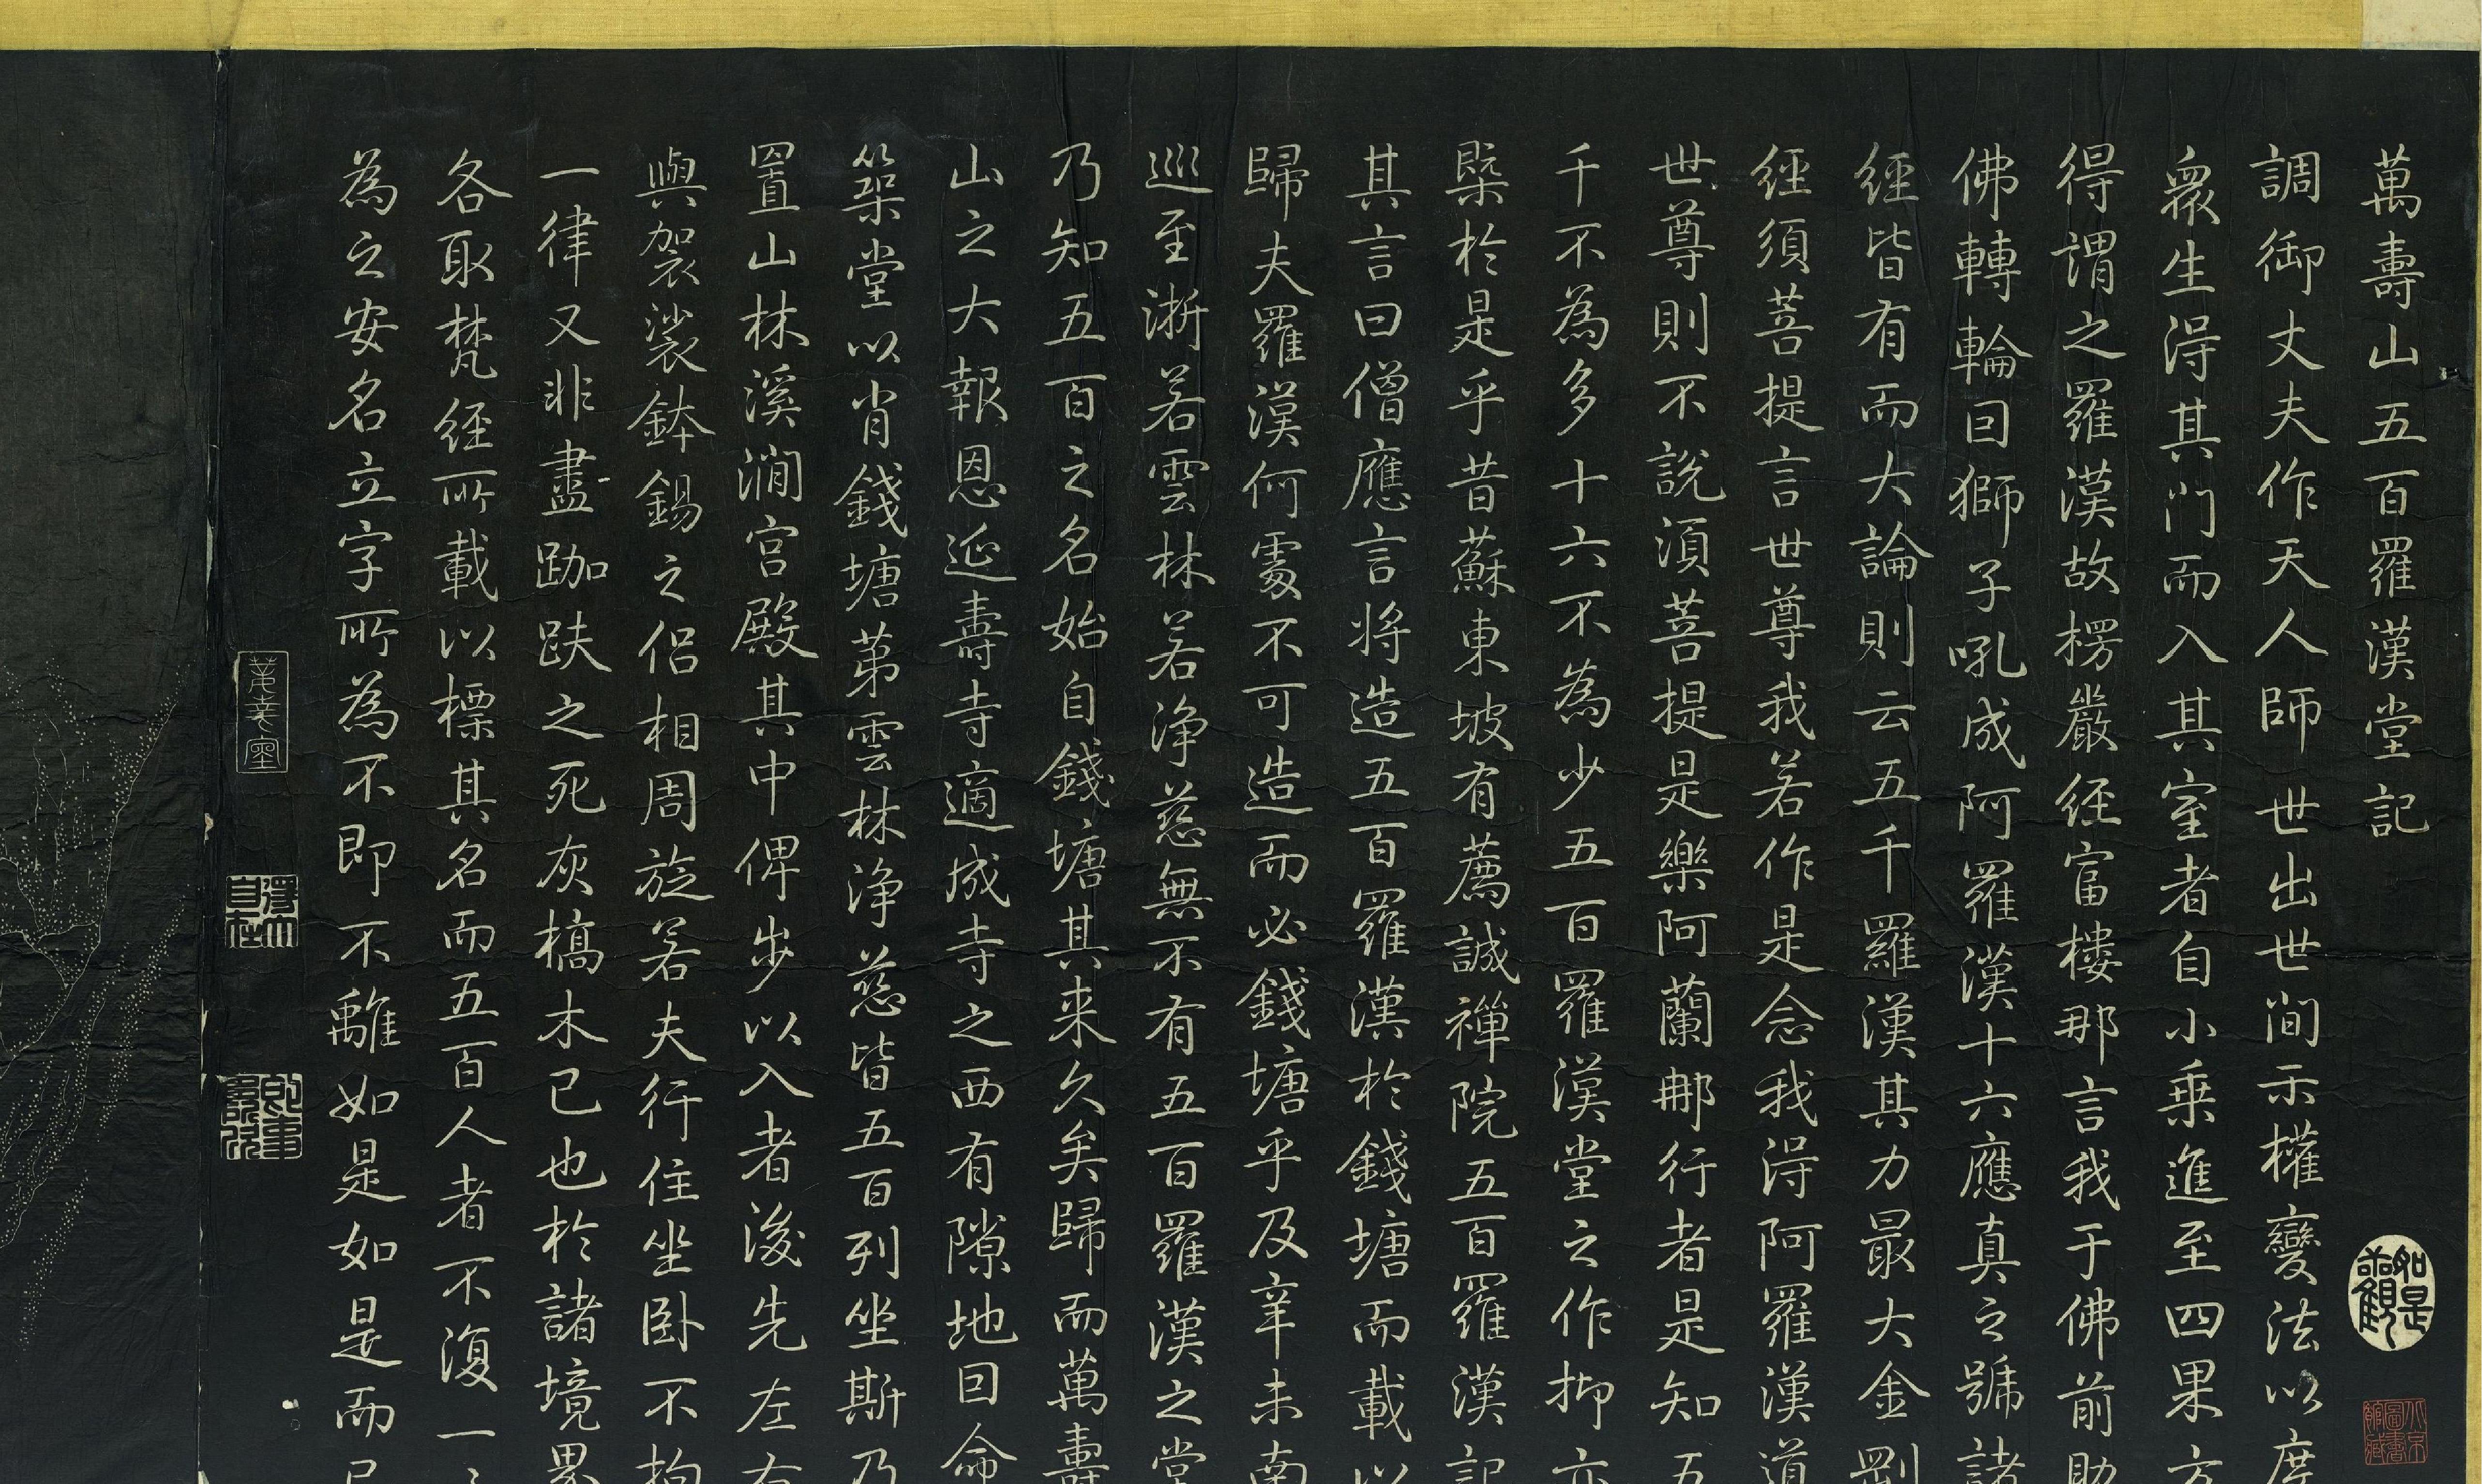 萬壽山五百羅漢堂記
調御丈夫作天人師世出世間示權變法以度
衆生得其門而入其室者自小乗進至四果方
得謂之羅漢故楞嚴經富樓那言我于佛前助
佛轉輪因獅子吼成阿羅漢十六應真之號諸
經皆有而大論則云五千羅漢其力最大金剛
經須菩提言世尊我若作是念我得阿羅漢道
世尊則不說須菩提是樂阿蘭那行者是知五
千不為多十六不為少五百羅漢堂之作抑亦
槩於是乎昔蘇東坡有薦誠禪院五百羅漢記
其言曰僧應言將造五百羅漢於錢塘而載以
歸夫羅漢何處不可造而必錢塘乎及辛未南
巡至浙若雲林若淨慈無不有五百羅漢之堂
乃知五百之名始自錢塘其来久矣歸而萬壽
山之大報恩延壽寺適成寺之西有隙地因命
築堂以肖錢塘第雲林淨慈皆五百列坐斯乃
置山林溪澗宫殿其中俾步以入者後先左右
與袈裟鉢錫之侣相周旋若夫行住坐卧不拘
一律又非盡跏趺之死灰槁木已也於諸境界
各取梵經所載以標其名而五百人者不復一
為之安名立字所為不即不離如是如是而已
如是觀